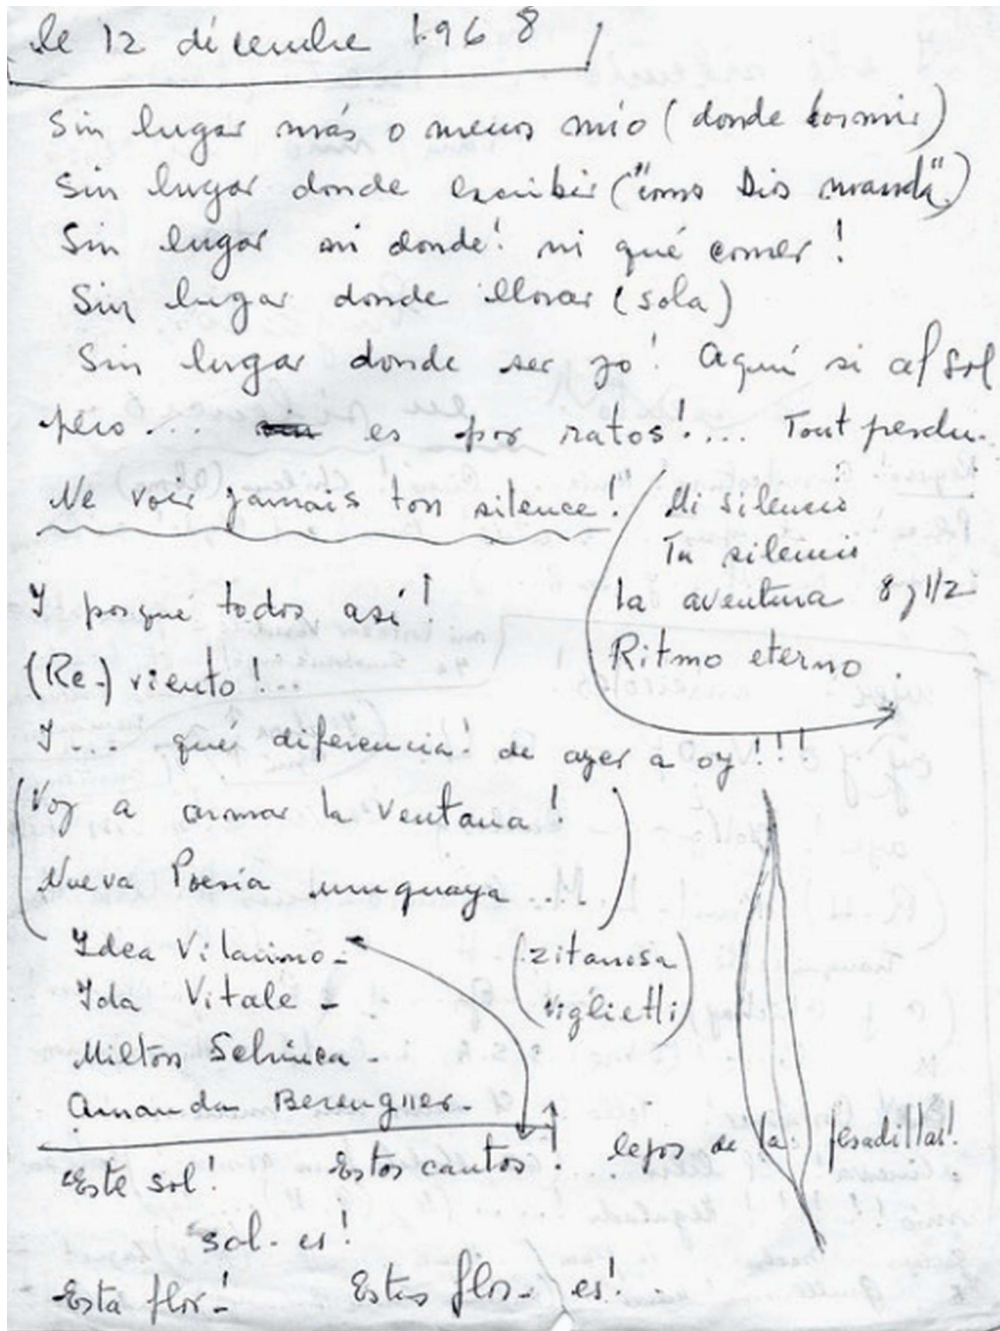 le 12 décembre 1968
Sin lugar más o menos mío (donde dormir)
Sin lugar donde escribir ("como Dios manda")
Sin lugar ni donde! ni qué comer!
Sin lugar donde llorar (sola)
Sin lugar donde ser yo! Aquí si al sol
pero .... es por ratos!.... Tout perdu.
Ne voir jamais ton silence!
Mi silencio
Tu silencio
la aventura 8 y 1/2
Ritmo eterno.
Y porqué todos así!
(Re-) viento!
Y... qué diferencia! de ayer a oy!!!
(Voy a armar la ventana!
Nueva Poesía uruguaya...)
Idea Vilarino-
Ida Vitale -
Milton Schinca -
Amanda Berenguer-
(zitarrosa
viglietti)
Este sol! Estos cantos! lejos de la pesadillas!
sol- es!
Esta flor-! Estas flor- es!